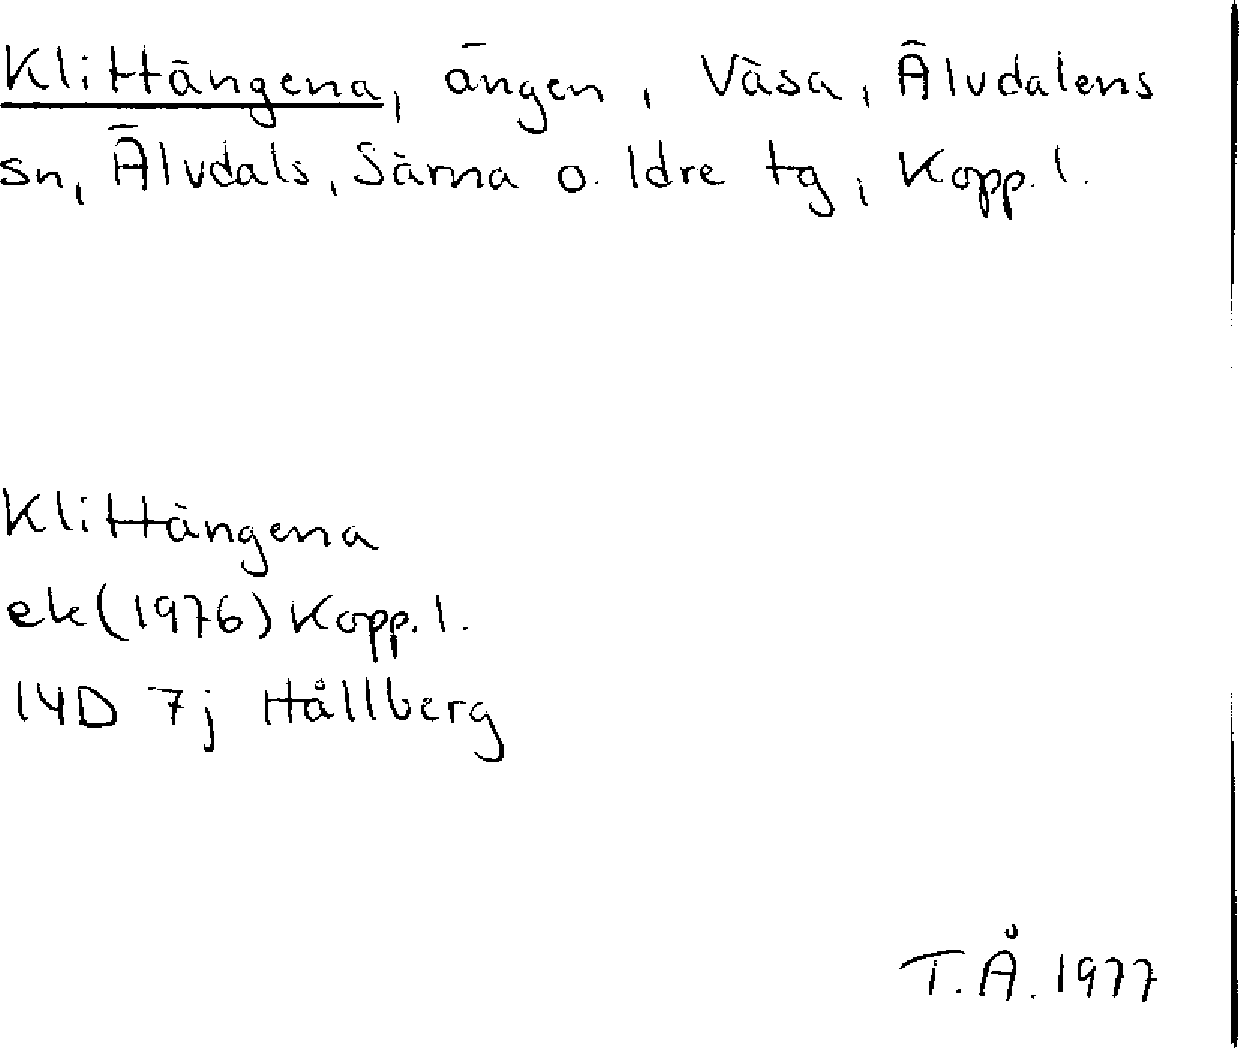 Klittängena, ängen, Väsa, Älvdalens
sn, Älvdals, Särna o. Idre tg, Kopp. l.
Klittängena
ek (1976) Kopp. l.
14D 7j Hållberg
T.Å. 1977